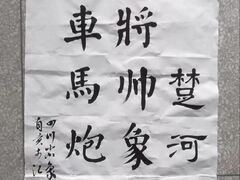 楚河
將帅象
車馬炮
四川
自贡